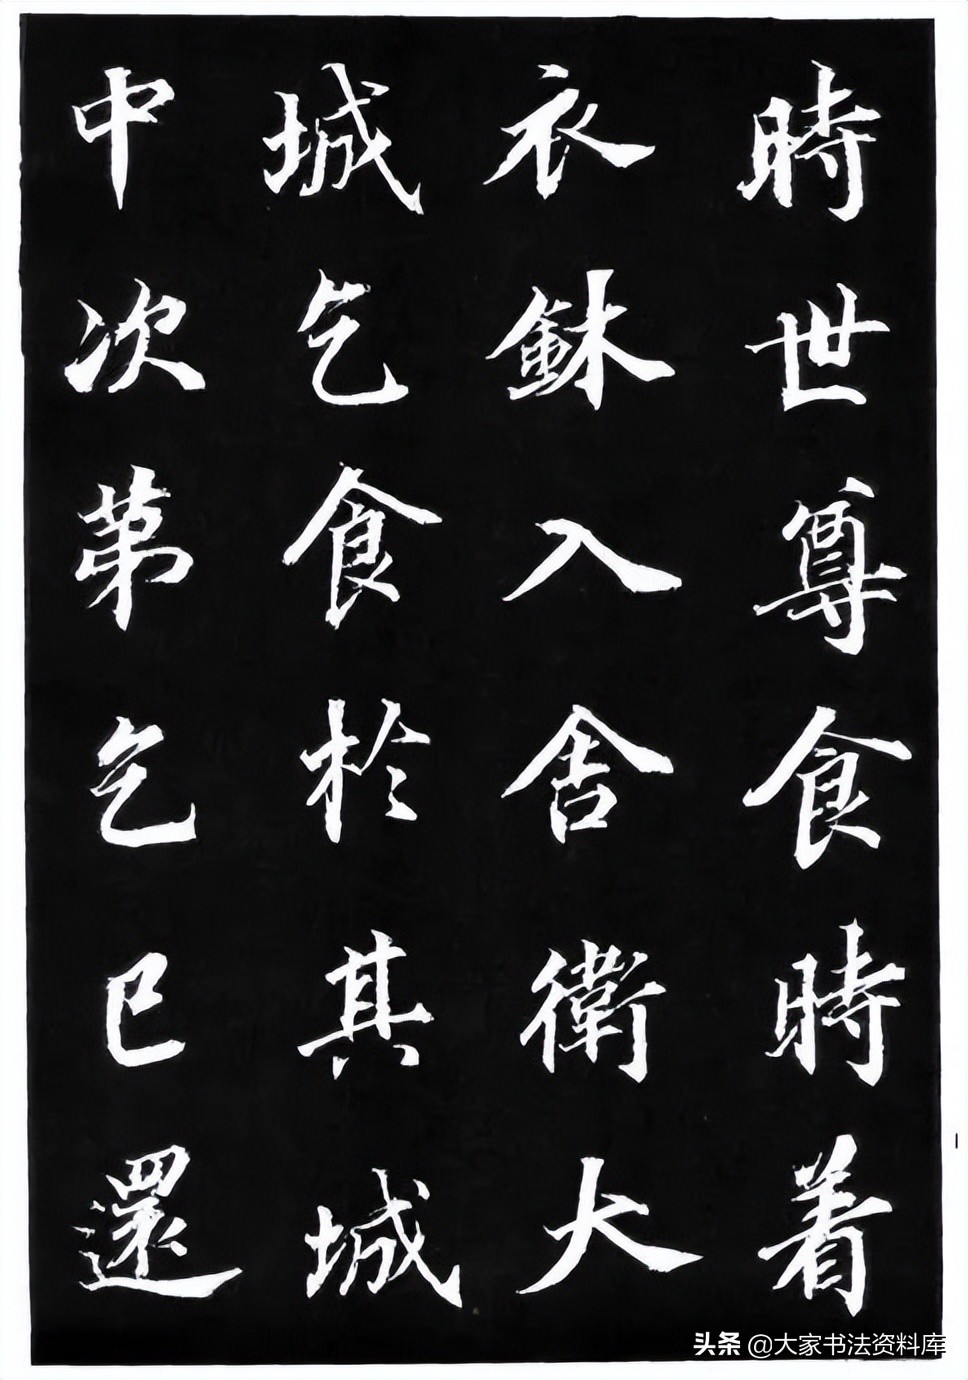 時世尊食時着
衣鉢入舍衛大
城乞食於其城
中次第乞已還
头条 @大家书法资料库